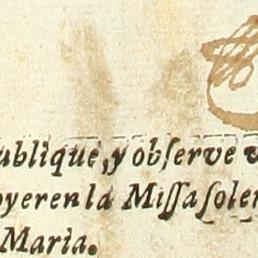 ublique, y obſerve v
oyeren la Miſſa ſolen
Maria.